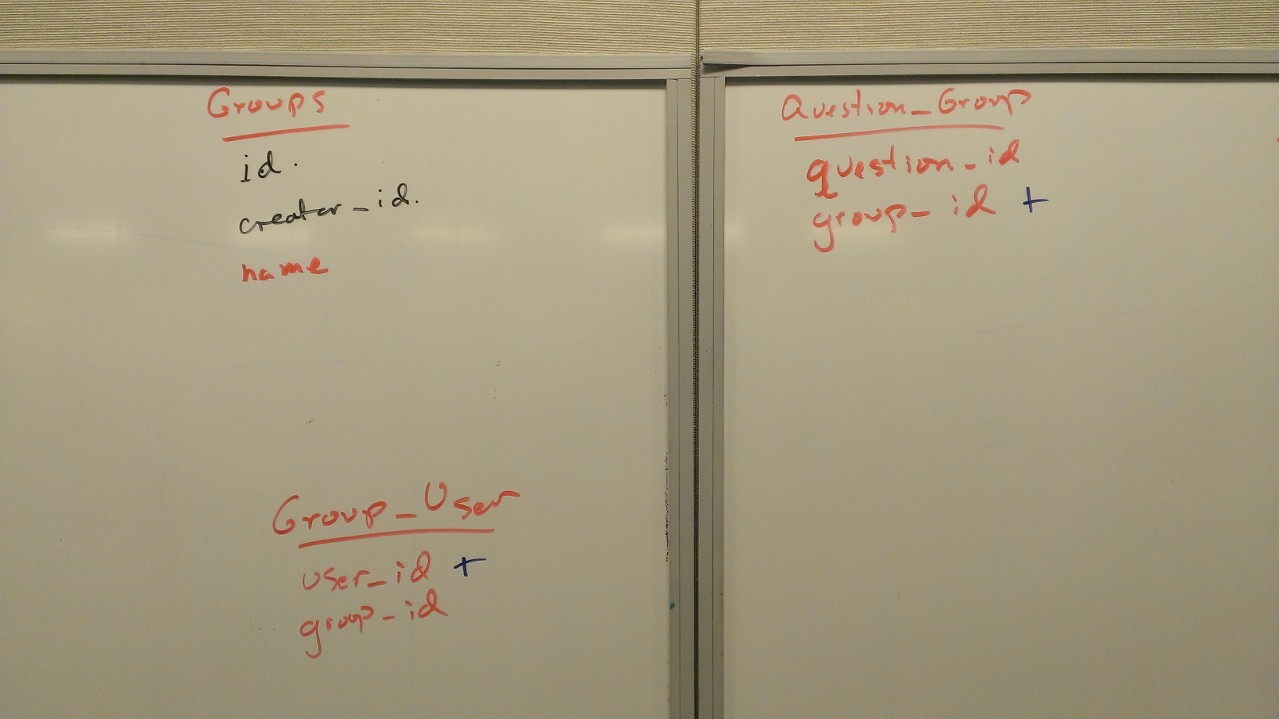 Groups
id.
creator_id.
name
Group_User
user_id +
group_id
Question_Group
question_id
group_id +